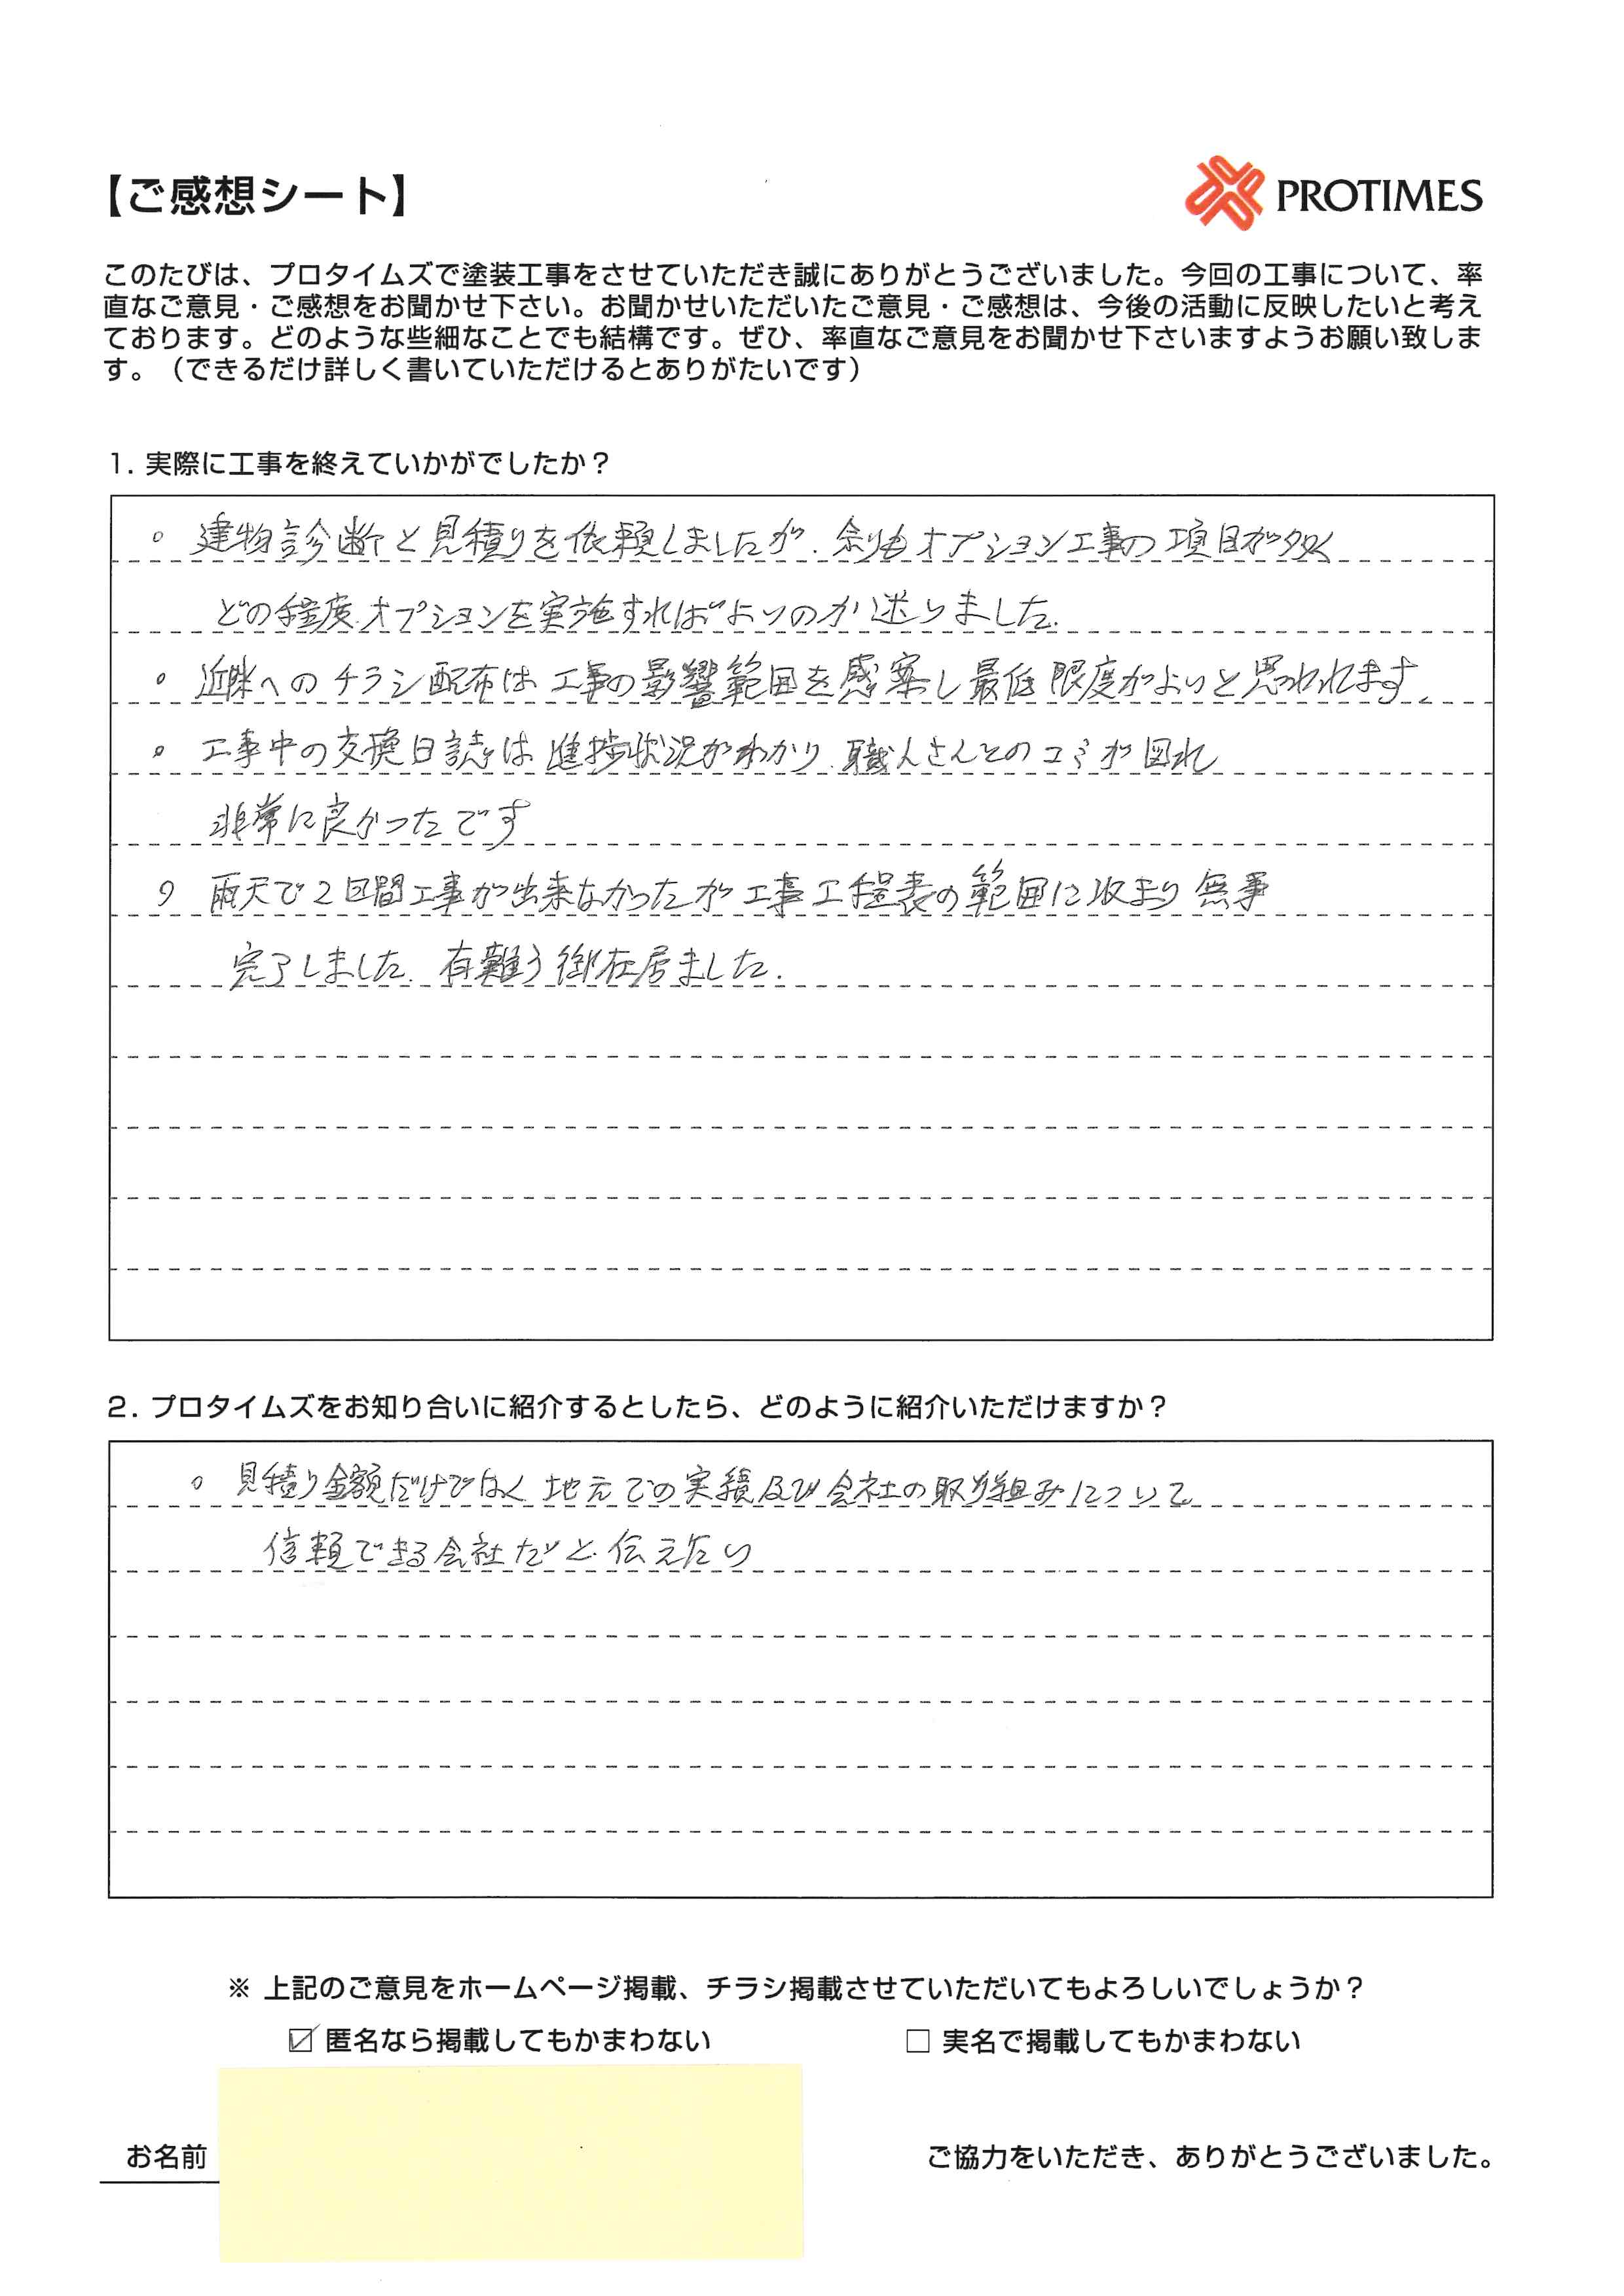 【ご感想シート】
PROTIMES
このたびは、プロタイムズで塗装工事をさせていただき誠にありがとうございました。今回の工事について、率
直なご意見・ご感想をお聞かせ下さい。お聞かせいただいたご意見・ご感想は、今後の活動に反映したいと考え
ております。どのような些細なことでも結構です。ぜひ、率直なご意見をお聞かせ下さいますようお願い致しま
す。（できるだけ詳しく書いていただけるとありがたいです）
1. 実際に工事を終えていかがでしたか？
。建物診断と見積りを依頼しましたが、余りもオプション工事の項目が多く
どの程度オプションを実施すればよいのか迷いました。
。近隣へのチラシ配布は工事の影響範囲を感案し最低限度がよいと思われます。
。工事中の交換日誌は進捗状況がわかり、職人さんとのコミが図れ
非常に良かったです
。雨天で2回間工事が出来なかったが工事工程表の範囲に収まり無事
完了しました。有難う御在居ました。
2. プロタイムズをお知り合いに紹介するとしたら、どのように紹介いただけますか？
。見積り金額だけでなく地元での実績及び会社の取り組みについて
信頼できる会社だと伝えたい
※ 上記のご意見をホームページ掲載、チラシ掲載させていただいてもよろしいでしょうか？
☑ 匿名なら掲載してもかまわない □ 実名で掲載してもかまわない
お名前 ご協力をいただき、ありがとうございました。